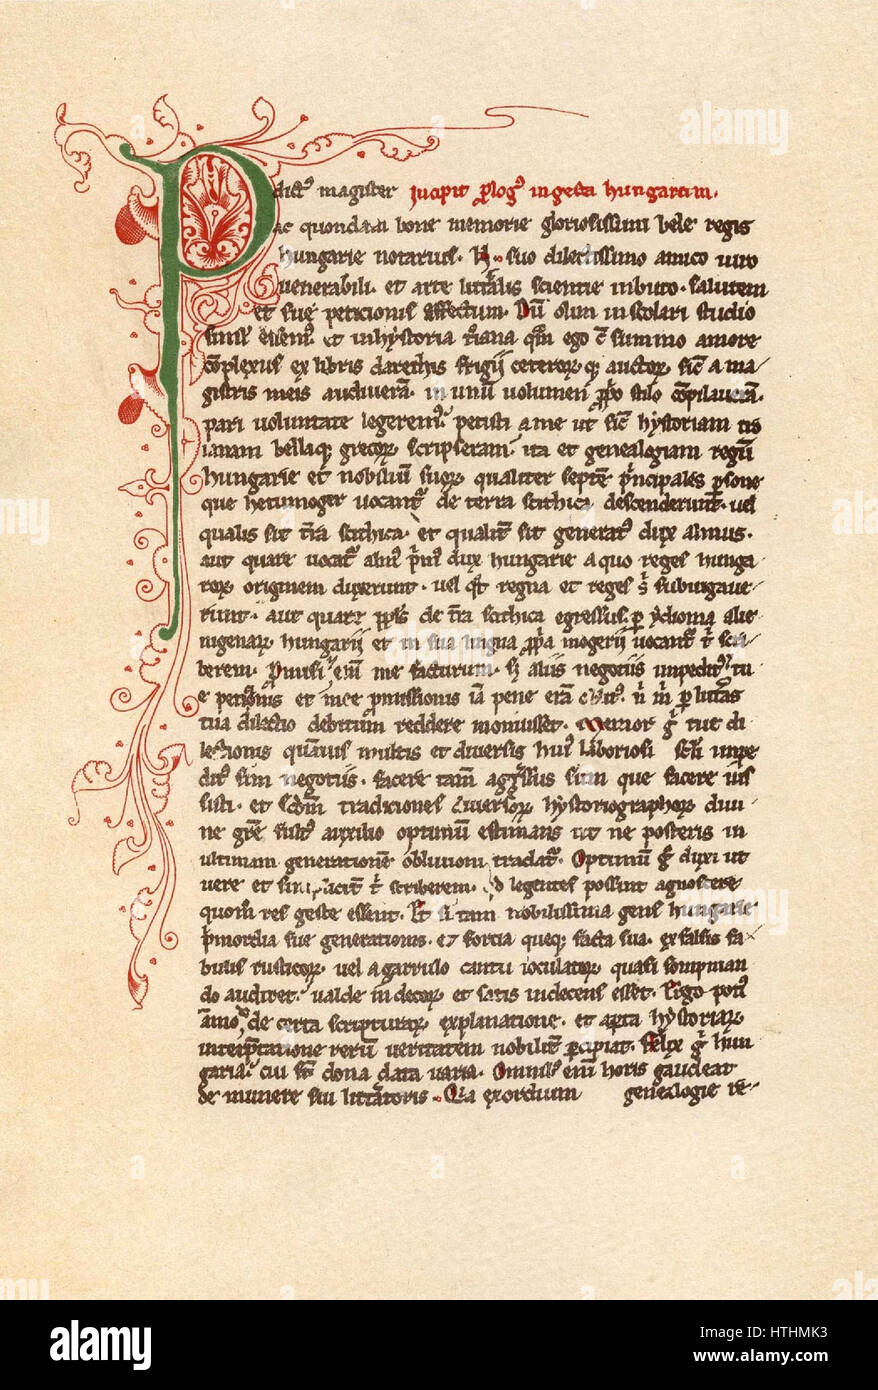 P dictꝰ magister Incipit ꝓlogꝰ in gesta hungarum.
ac quondam bone memorie gloriosissimi bele regis
hungarie notarius. N. suo dilectissimo amico uiro
uenerabili. et arte litt̄alis scientie inbuto. salutem
et sue peticionis affectum. Dū olim in scolari studio
simul essemꝰ. et in hystoria t̓iana qm̄ ego cū summo amore
ꝯplexus ex libris darethis frigii ceterorꝜ qꝫ auctorꝜ sic̄ a ma/
gistris meis audiuerā. in unū uolumen ꝓpͦo stilo ꝯpilaueram.
pari uoluntate legeremꝰ. petisti a me ut sic̄ hystoriam tro
ianam bellaqꝫ grecorꝜ scripseram. ita et genealogiam regū
hungarie et nobiliū suorꝜ qualiter septē p̓ncipales ꝑsone
que hetumoger uocant᷑ de terra scithica descenderunt. uel
qualis sit t̄ra scithica. et qualit̄ sit generatꝰ dux almus.
aut quare uocat᷑ almꝰ p̓mꝰ dux hungarie a quo reges hunga
rorꝜ originem duxerunt. uel qͦt regna et reges sͥ subiugaue/
runt. aut quare ppl̓s de t̄ra scithica egressus. ꝑ ydioma alie
nigenarꝜ hungarii et in sua lingua ꝓpͥa mogerii uocant᷑ t̓ scri/
berem. Promisi eni̅ me facturum. sꝫ aliis negotiis impeditꝰ tu
e peticionis et mee ꝓmissionis iā pene erā oblitꝰ. nͥ m̓ ꝑ litt̄as
tua dilectio debitum reddere monuisset. Memor gͦ tue di
lectionis quāuis multis et diuersis huiꝰ laboriosi scl̓i impe
ditꝰ sim negotiis. facere tam̄ aggressus sum que facere ius
sisti. et scd̓m traditiones diuersorꝜ hystoriographorꝜ diui/
ne grē fultꝰ auxilio optimū estimans ut ne posteris in
ultimam generationē obliuioni tradat᷑. Optimū gͦ duxi ut
uere et simpliciter t̓ scriberem. qd legentes possint agnoscere
quomͦ res geste essent. Et si tam nobilissima gens hungarie
p̓mordia sue generationis. et fortia queqꝫ facta sua. ex falsis fa/
bulis rusticorꝜ uel a garrulo cantu ioculatorꝜ quasi sompnian
do audiret. ualde indecorꝜ et satis indecens esset. Ergo potiꝰ
āmodo de certa scripturarꝜ explanatione. et aꝑta hystoriarꝜ
interp̄tatione rerū ueritatem nobilit̄ ꝑcipiat. Felix gͥ hun
garia. cui st̄ dona data uaria. Omnibꝰ eni̅ horis gaudeat
de munere sui litt̄atoris. Quia exordium genealogie re/
alamy
HTHMK3
www.alamy.com